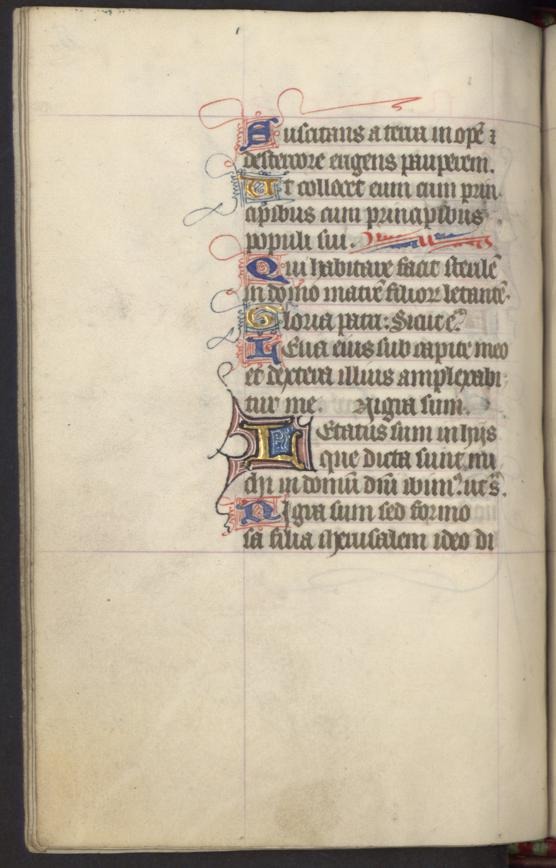 Suscitans a terra in opē ⁊
de stercore erigens pauperem.
Ut collocet eum cum prin
cipibus cum principibus
populi sui.
Qui habitare facit sterilē
in domo matrē filiorꝫ letantē.
Gloria patri: Sicut e.
Leua eius sub capite meo
et dextera illius amplexabi
tur me. Nigra sum.
Letatus sum in hijs
que dicta sunt mi
chi in domū dn̄i ibim9. ut s.
Nigra sum sed formo
sa filia iherusalem ideo di